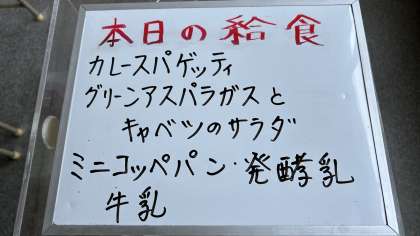 本日の給食
カレースパゲッティ
グリーンアスパラガスと
キャベツのサラダ
ミニコッペパン・発酵乳
牛乳